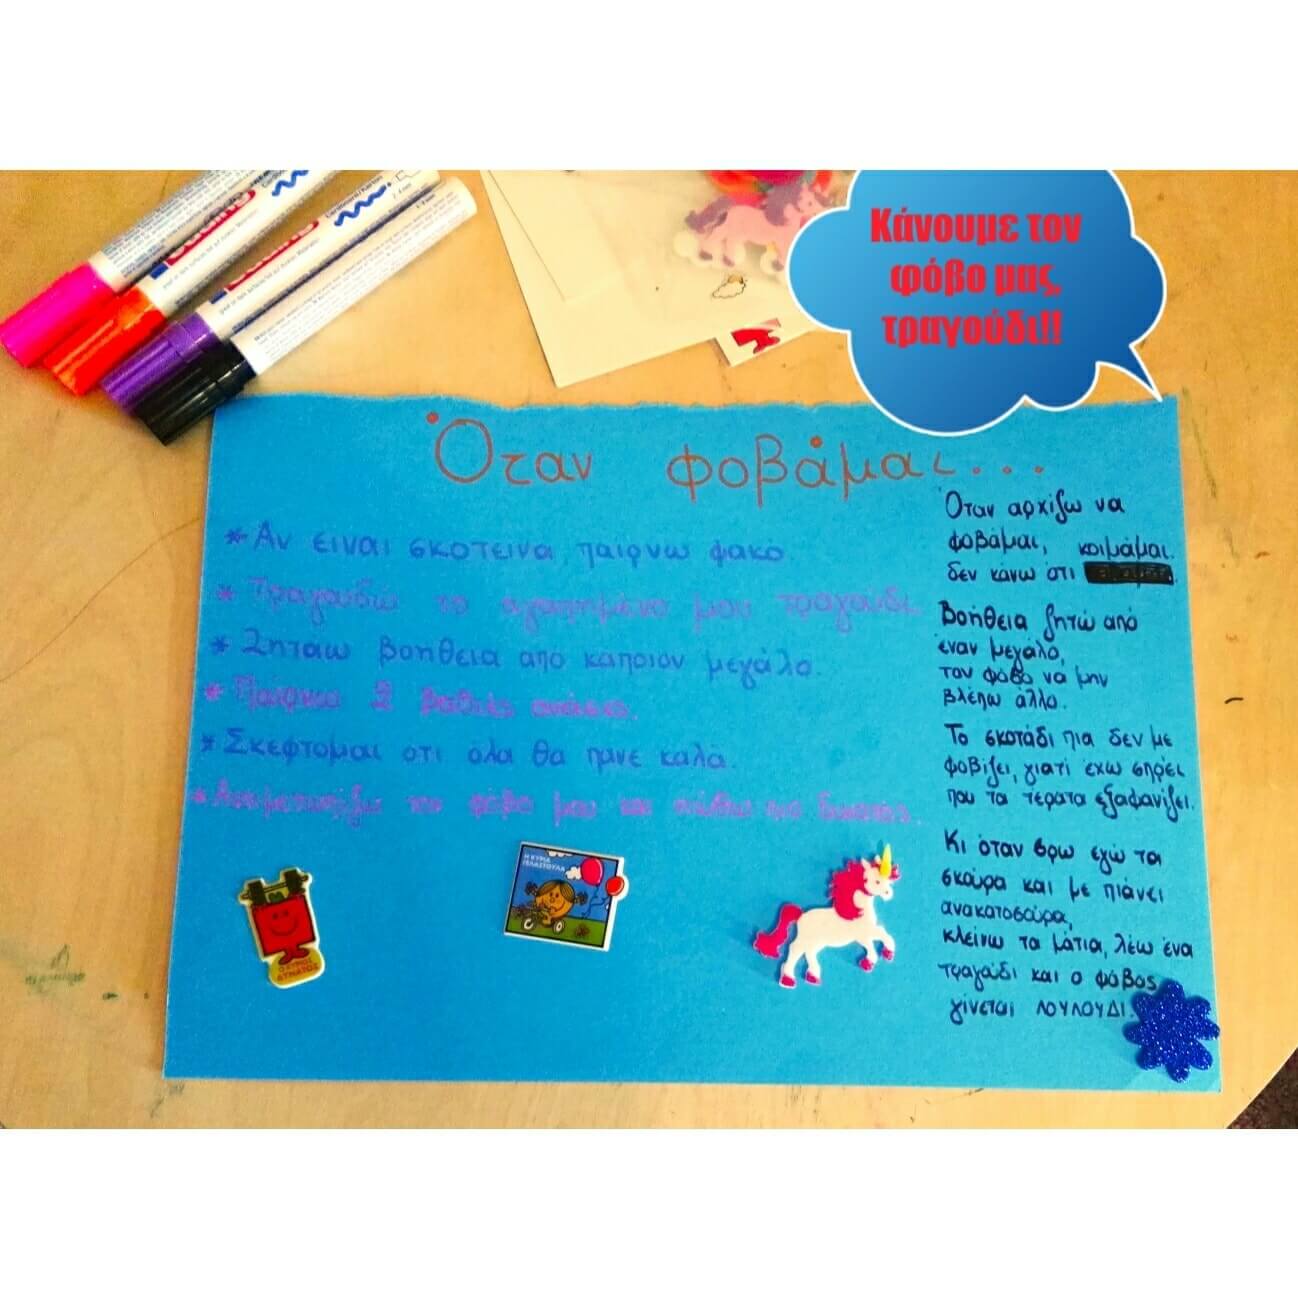 edding
edding
Κάνουμε τον
φόβο μας,
τραγούδι!!
Όταν φοβάμαι...
* Αν ειναι σκοτεινα, παιρνω φακό
* Τραγουδώ το αγαπημένο μου τραγούδι
* Ζηταω βοήθεια απο καποιον μεγάλο.
* Παίρνω 2 βαθιές ανάσες.
* Σκέφτομαι οτι όλα θα πανε καλά.
* Αντιμετωπίζω τον φόβο μου και νιώθω πιο δυνατός.
Όταν αρχίζω να
φοβάμαι, κοιμάμαι.
δεν κάνω ότι
Βοήθεια ζητώ από
έναν μεγάλο,
τον φόβο να μην
βλέπω άλλο.
Το σκοτάδι πια δεν με
φοβίζει, γιατί έχω σπρέι
που τα τέρατα εξαφανίζει.
Κι όταν βρω εγώ τα
σκούρα και με πιάνει
ανακατοσούρα,
κλείνω τα μάτια, λέω ένα
τραγούδι και ο φόβος
γίνεται ΛΟΥΛΟΥΔΙ.
Η ΚΥΡΙΑ
ΓΕΛΑΣΤΟΥΛΑ
Ο ΚΥΡΙΟΣ
ΔΥΝΑΤΟΣ